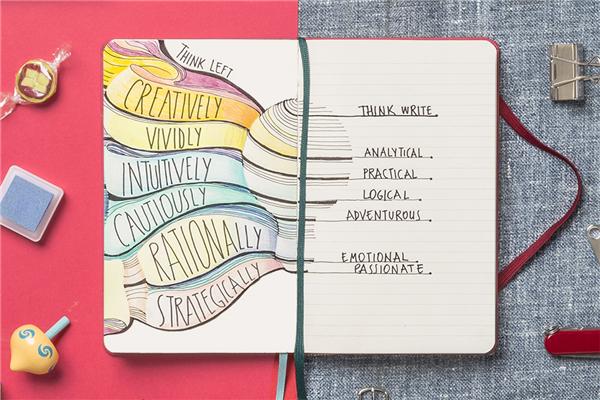 THINK LEFT
CREATIVELY
VIVIDLY
INTUITIVELY
CAUTIOUSLY
RATIONALLY
STRATEGICALLY
THINK WRITE.
ANALYTICAL.
PRACTICAL.
LOGICAL.
ADVENTUROUS.
EMOTIONAL.
PASSIONATE.